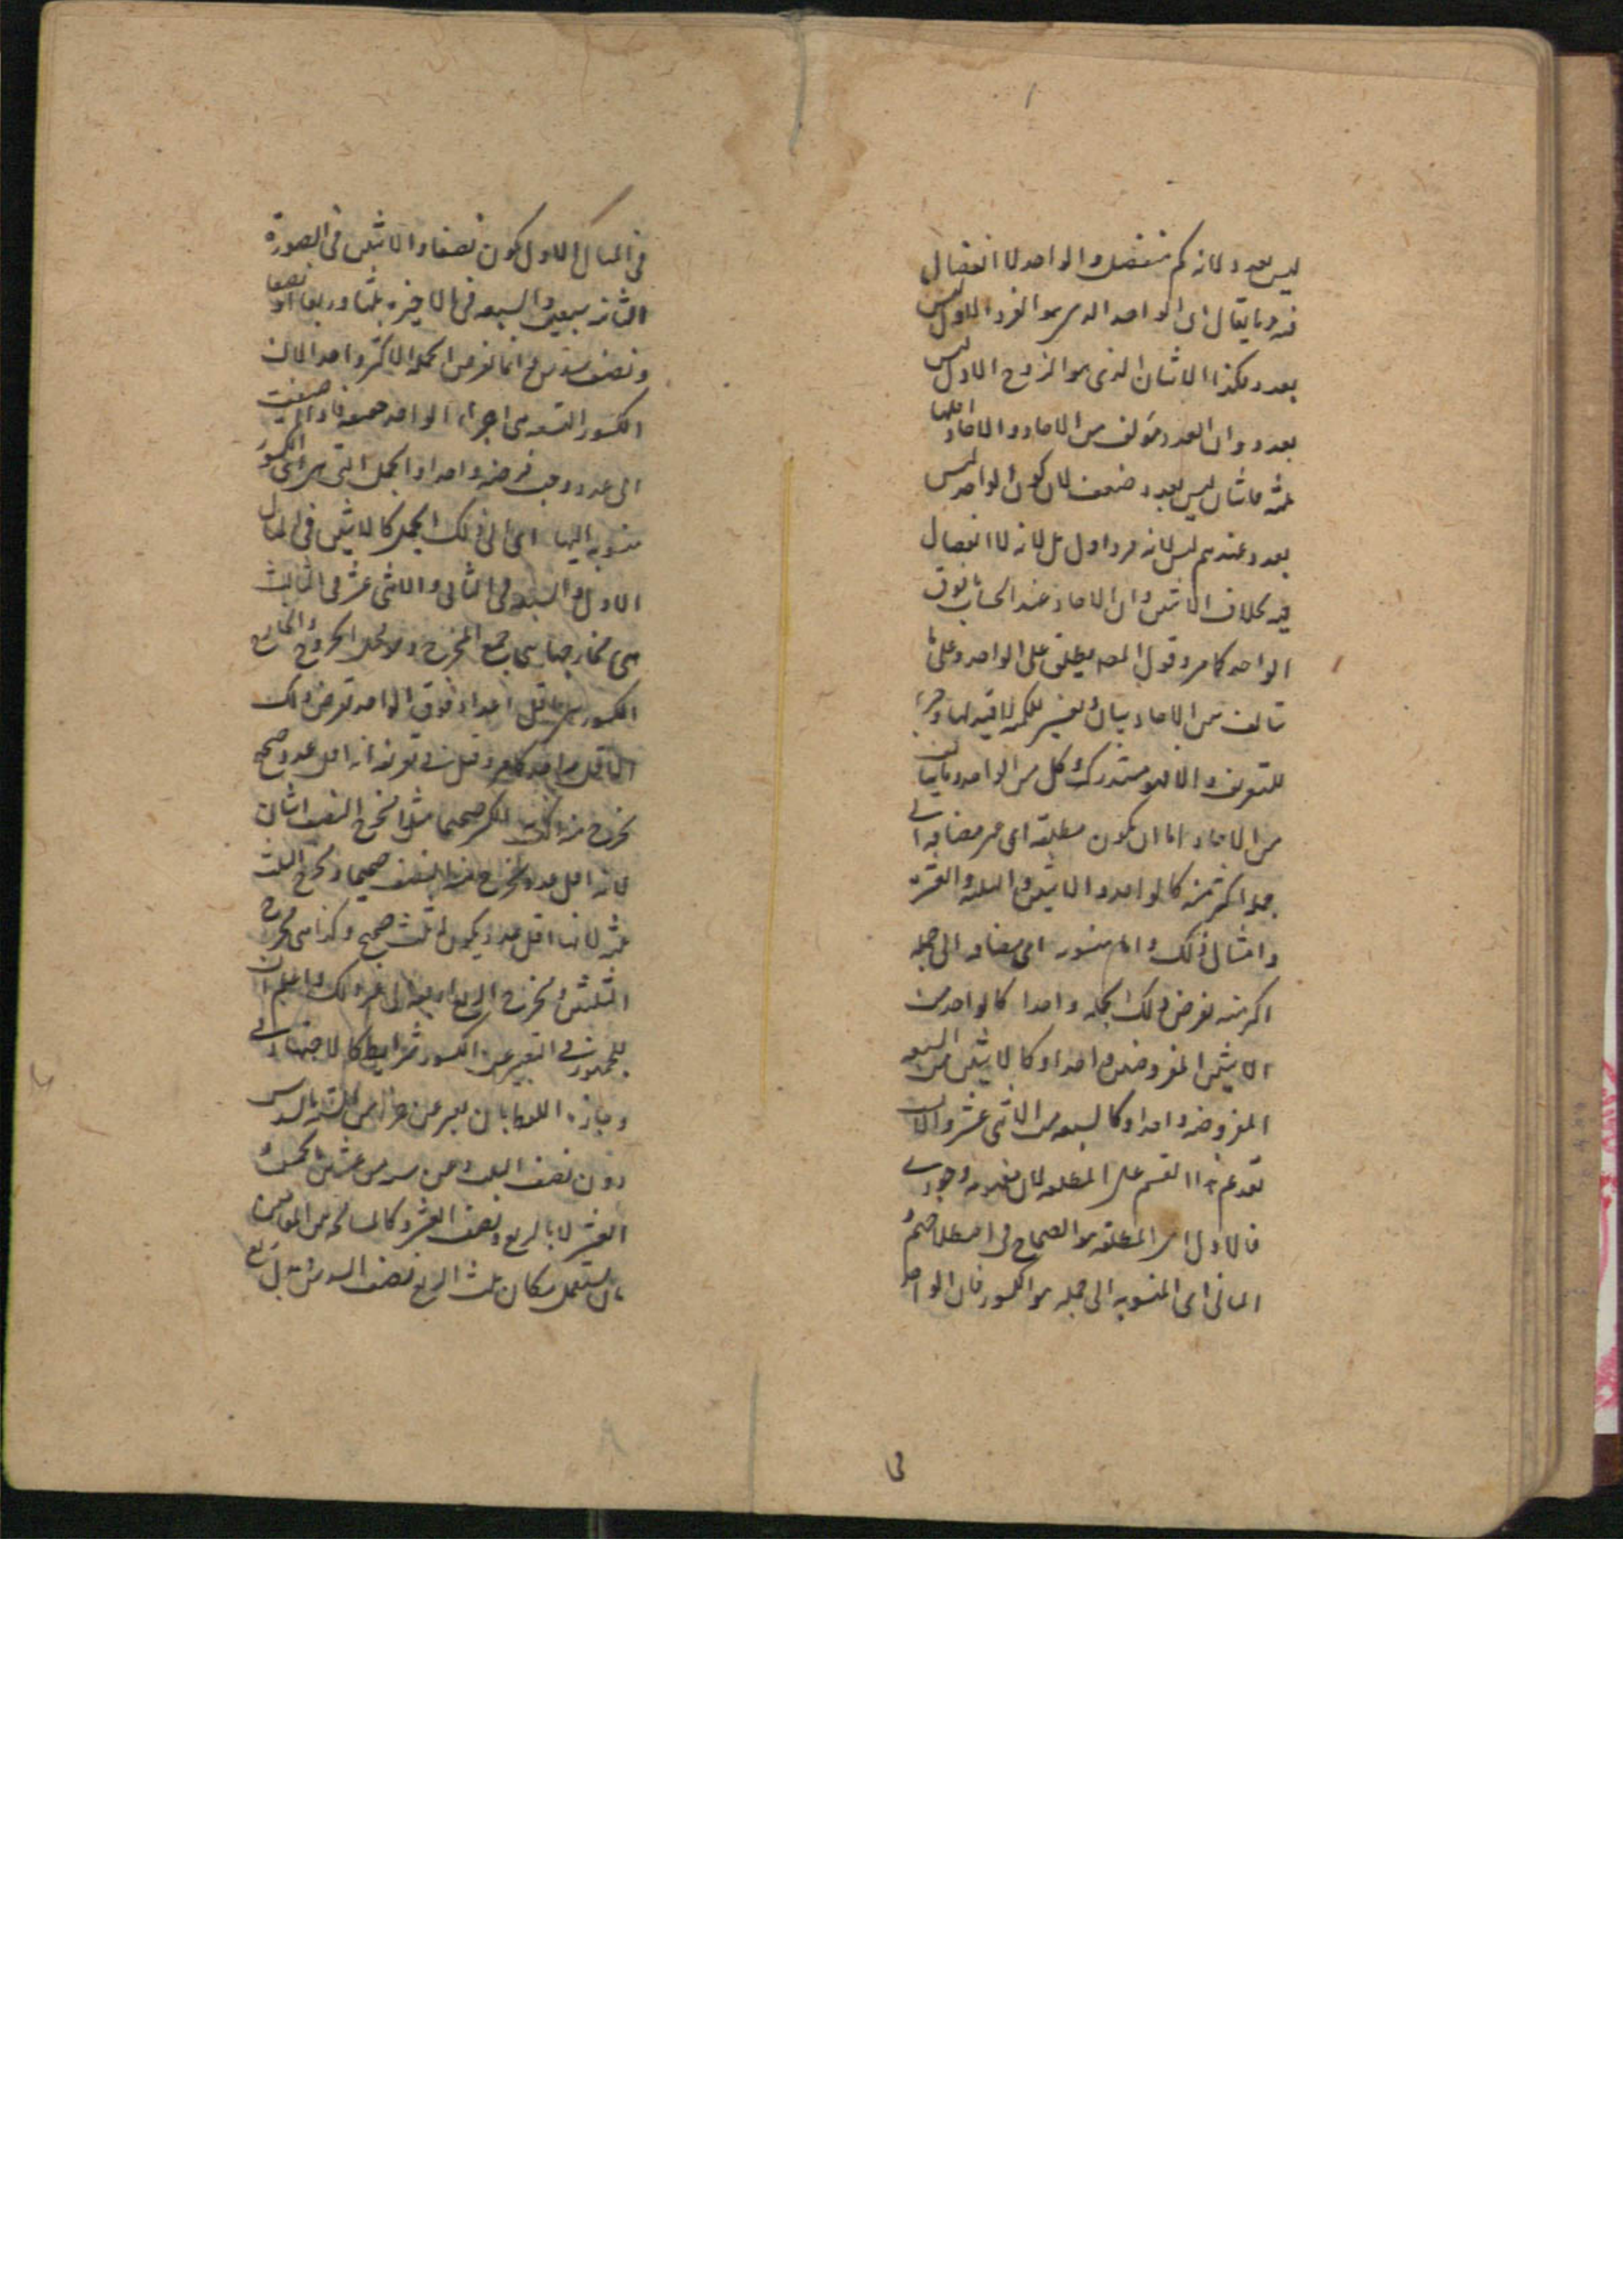 ليس بعدد لانه كم منفصل والواحد لا انفصال
فيه وما يقال ان الواحد الذى هو الفرد الاول ليس
بعدد وهكذا الاثنان الذى هو الزوج الاول ليس
بعدد وان العدد مؤلف من الاحاد والاحاد اقلها
ثلثة فاثنان ليس بعدد ضعيف لان كون الواحد ليس
بعدد عندهم ليس لانه فرد اول بل لانه لا انفصال
فيه بخلاف الاثنين وان الاحاد عند الحساب فوق
الواحد كما مر وقول المصـ يطلق على الواحد وعلى ما
تالف من الاحاد بيان وتفسير للكمية لا قيد لها وجزء
للتعريف والا فهو مستدرك وكل من الواحد وما تالف
من الاحاد اما ان يكون مطلقة اى غير مضافة الى
جملة اكثر منه كالواحد والاثنين والثلثة والعشرة
وامثال ذلك واما منسوبة اى مضافة الى جملة
اكثر منه نفرض ذلك الجملة واحدا كالواحد من
الاثنين المفروضين واحدا وكالاثنين من السبعة
المفروضة واحدا وكالسبعة من الاثنى عشر والان
تقدم هذا القسم على المطلقة لان مفهومه وجودى
فالاول اى المطلقة هو الصحاح فى اصطلاحهم و
الثانى اى المنسوبة الى جملة هو الكسور فان الواحد
فى المثال الاول يكون نصفا والاثنين فى الصورة
الثانية سبعين والسبعة فى الاخيرة ثلثا وربعا او نصفا
ونصف سدس وانما نفرض الجملة الاكثر واحدا لان
الكسور التسعة هى اجزاء الواحد حقيقة فاذا اضيفت
الى عدد وجب فرضه واحدا والجمل التى هى اى الكسور
منسوبة اليها اى الى ذلك الجمل كالاثنين فى المثال
الاول والسبعة فى الثانى والاثنى عشر فى الثالث
هى مخارجها جمع المخرج وهو محل الخروج والمخارج
الكسور هى اقل اعداد فوق الواحد نفرض ذلك
الاقل واحدا كما مر وقيل فى تعريفه انه اقل عدد صحيح
يخرج منه ذلك الكسر صحيحا مثلا مخرج النصف اثنان
لانه اقل عدد يخرج منه النصف صحيحا ومخرج الثلث
ثلثة لانها اقل عدد يكون له ثلث صحيح وكذا هى مخرج
الثلثين ومخرج الربع اربعة الى غير ذلك واعلم ان
للجمهور فى التعبير عن الكسور شرايط كالاختصار فى
وجازة اللفظ بان يعبر عن جزء من الستة بالسدس
دون نصف الثلث وعن خمسة من عشرين بالخمس و
العشر لا بالربع ونصف العشر وكالمسامحة من
بان يستعمل مكان ثلث الربع نصف السدس بل ربع